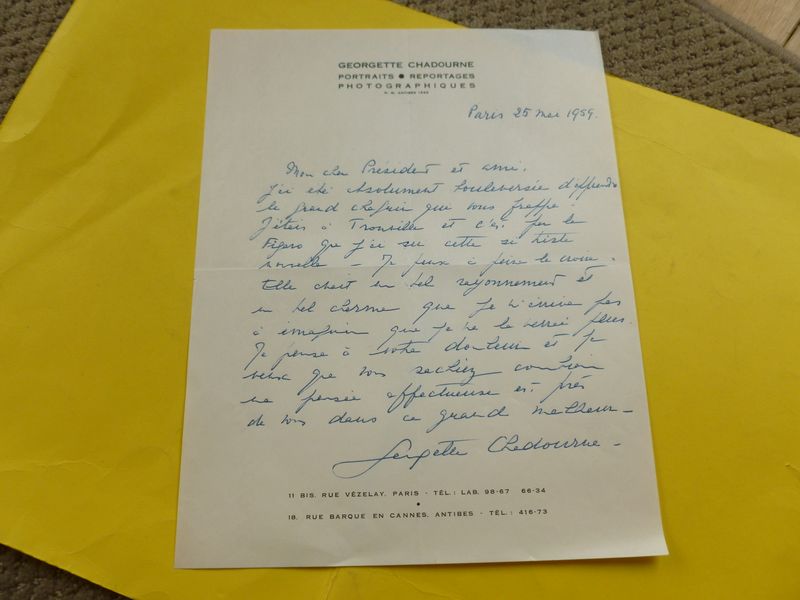 GEORGETTE CHADOURNE
PORTRAITS ● REPORTAGES
PHOTOGRAPHIQUES
R. M. ANTIBES
Paris 25 mai 1959.
Mon cher Président et ami.
J'ai été absolument bouleversée d'apprendre
le grand chagrin qui vous frappe.
J'étais à Trouville et c'est par le
Figaro que j'ai su cette si triste
nouvelle — Je peux à peine le croire.
Elle avait un tel rayonnement et
un tel charme que je n'arrive pas
à imaginer que je ne la verrai plus.
Je pense à votre douleur et je
veux que vous sachiez combien
ma pensée affectueuse est près
de vous dans ce grand malheur —
Georgette Chadourne —
11 BIS, RUE VÉZELAY, PARIS - TÉL.: LAB. 98-67 66-34
●
18, RUE BARQUE EN CANNES, ANTIBES - TÉL.: 416-73